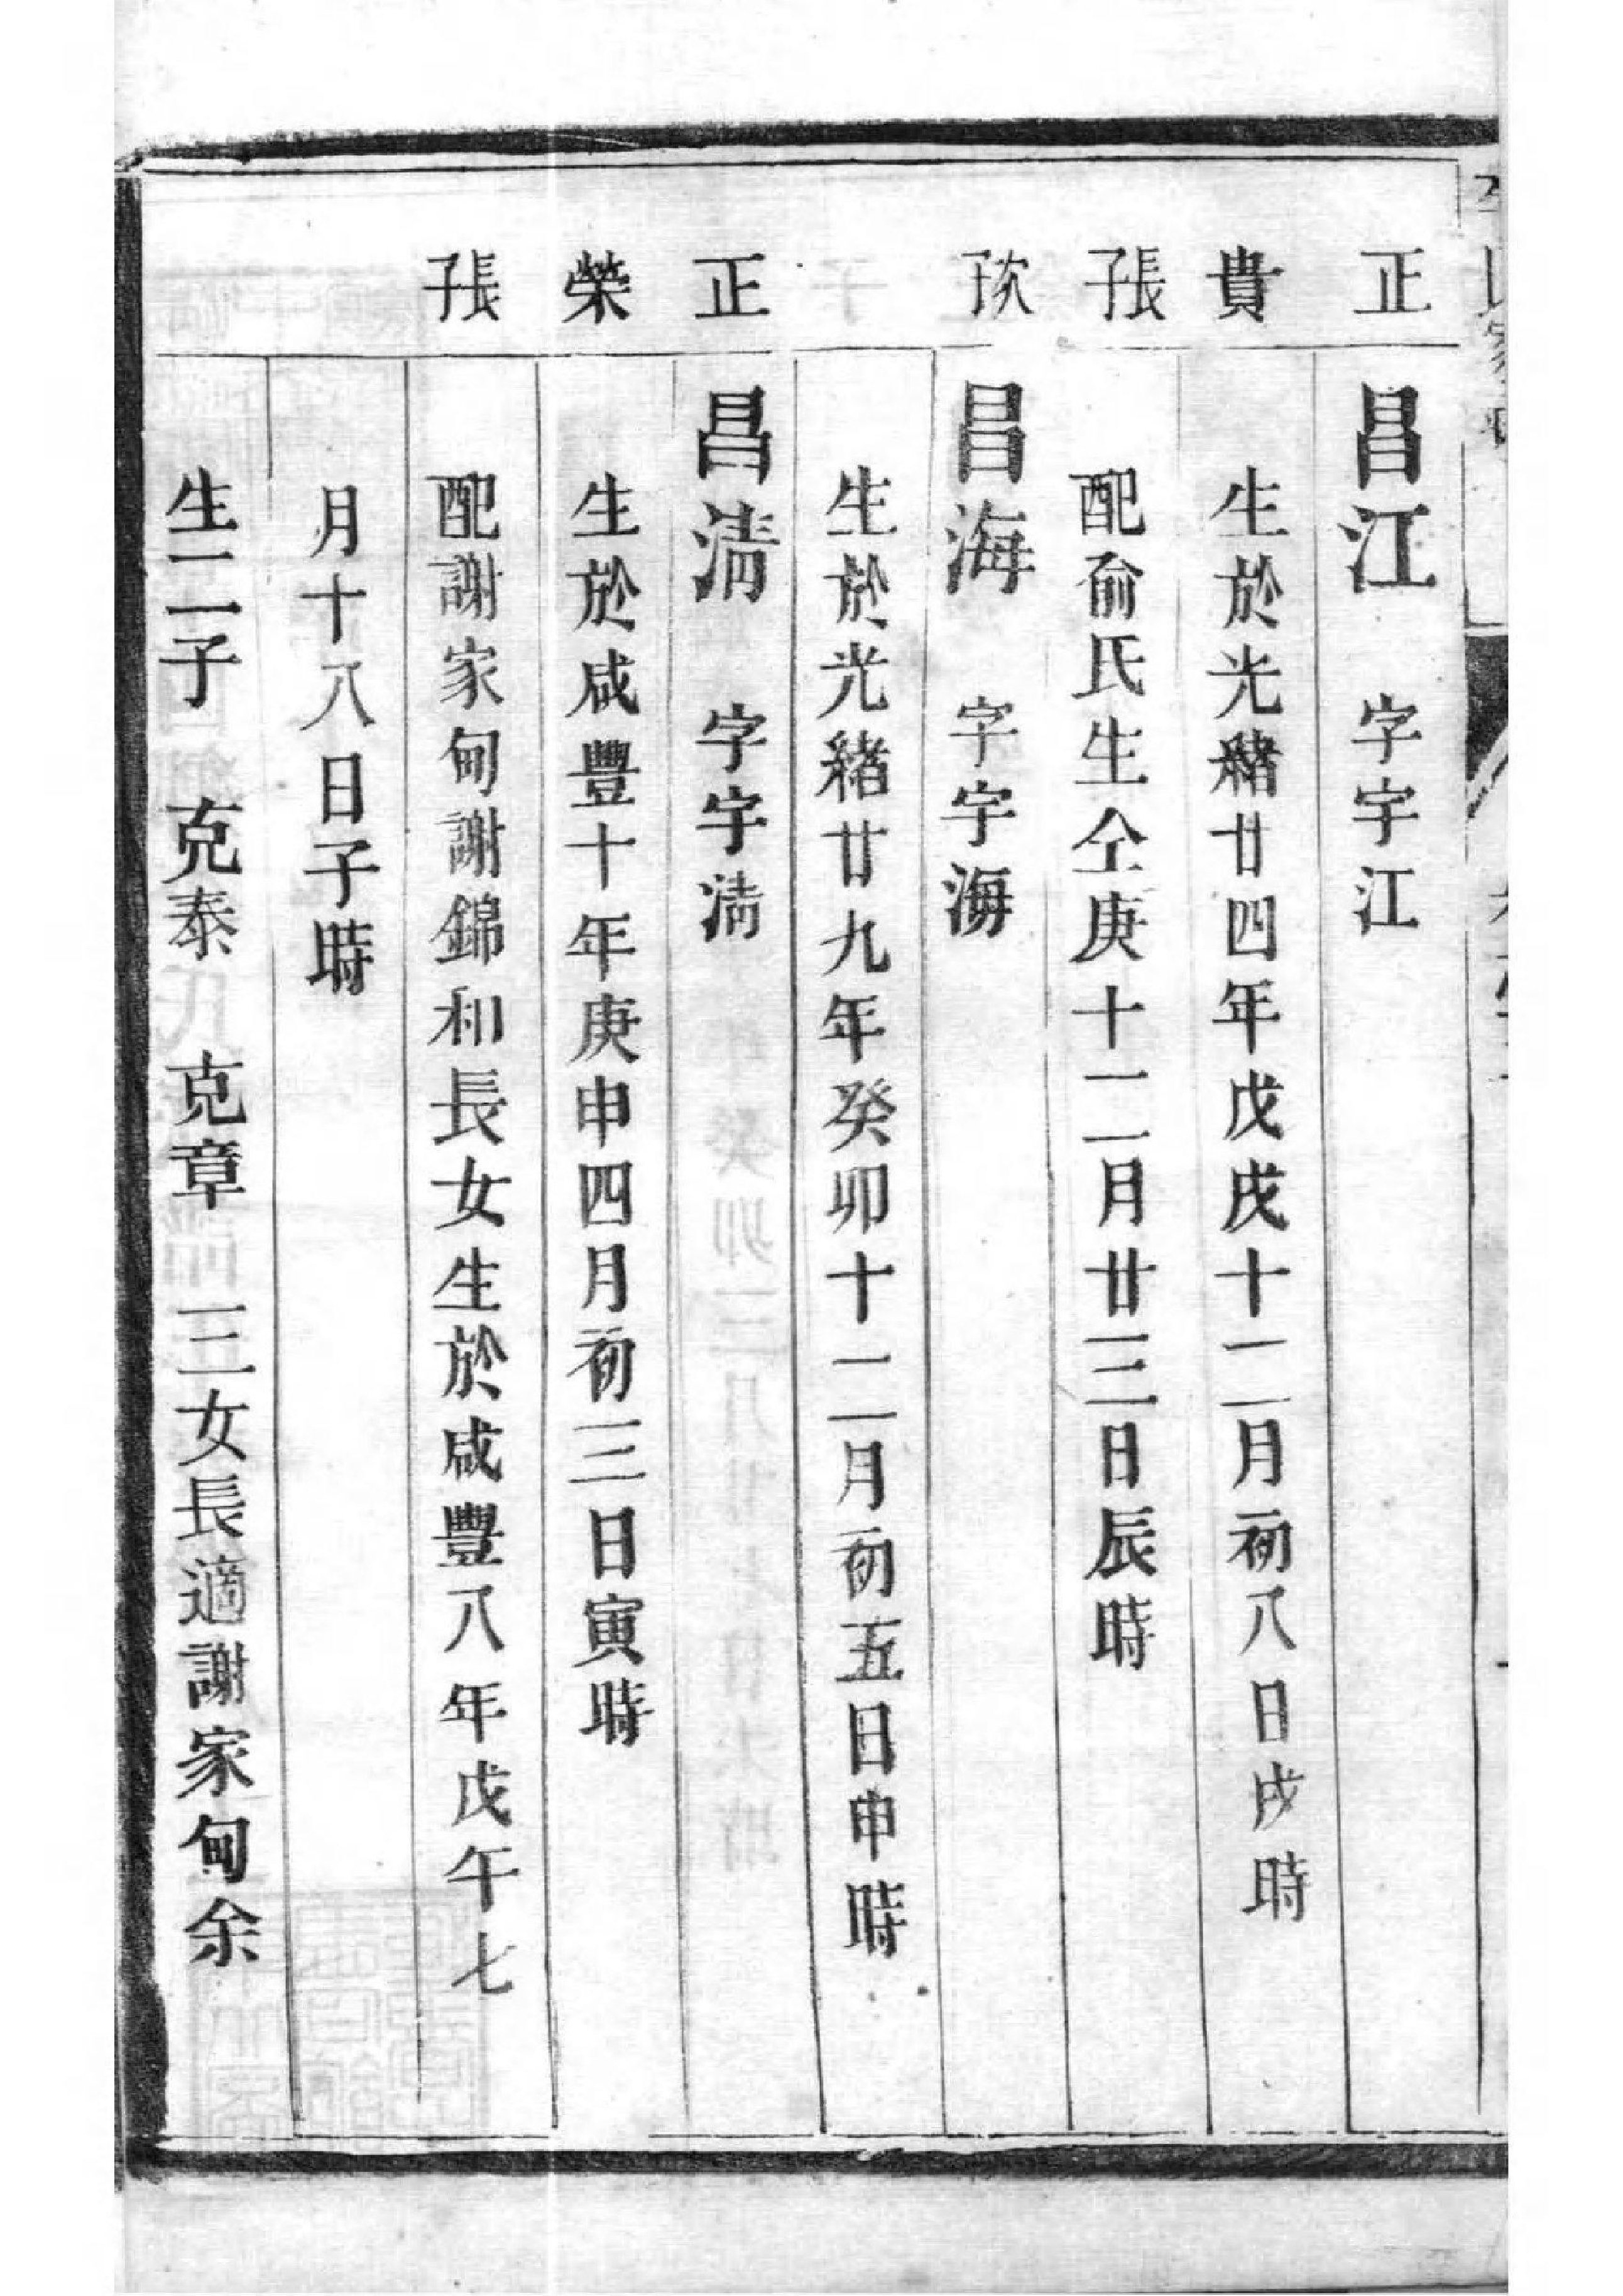 正 昌江 字宇江
貴 生於光緒廿四年戊戌十二月初八日戌時
張子 配俞氏生仝庚十二月廿三日辰時
昌海 字宇海
生於光緒廿九年癸卯十二月初五日申時
正 昌清 字宇清
榮 生於咸豐十年庚申四月初三日寅時
張子 配謝家甸謝錦和長女生於咸豐八年戊午七
月十八日子時
生二子 克泰 克章 三女長適謝家甸余